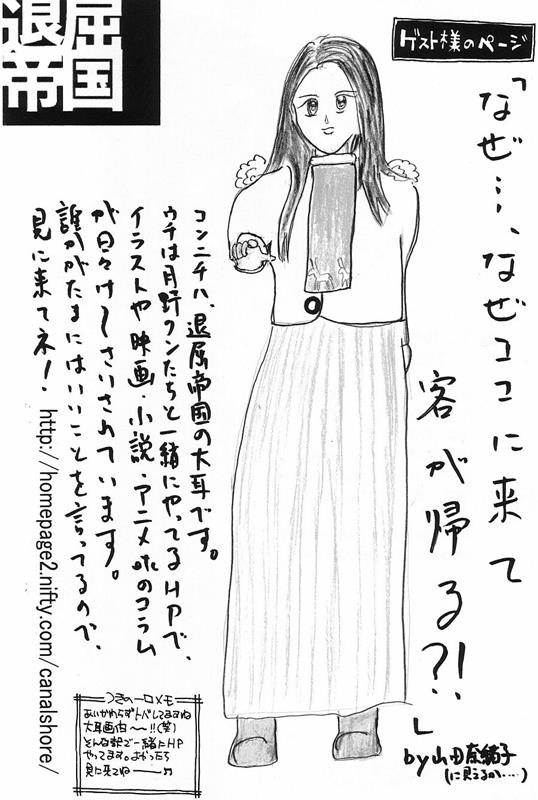 退屈
帝国
ゲスト様のページ
「なぜ…、なぜココに来て
客が帰る?!」
by山田奈緒子
(に見えるか‥‥)
コンニチハ、退屈帝国の大耳です。
ウチは月野クンたちと一緒にやってるHPで、
イラストや映画・小説・アニメetcのコラム
が日々け〜さいされています。
誰かがたまにはいいことを言ってるので、
見に来てネ!
http://homepage2.nifty.com/canalshore/
つきの一口メモ
あいかわらずトバしてますね
大耳画伯〜!!(笑)
そんな訳で一緒にHP
やってます。よかったら
見に来てねー♪